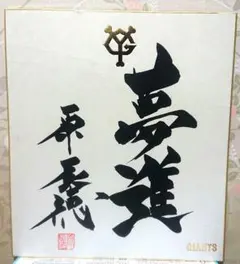 YG
夢進
原辰徳
GIANTS